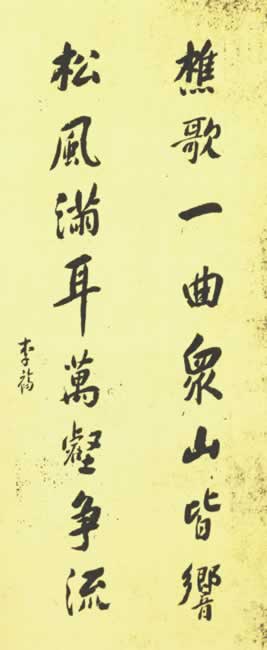 樵歌一曲衆山皆響
松風滿耳萬壑争流